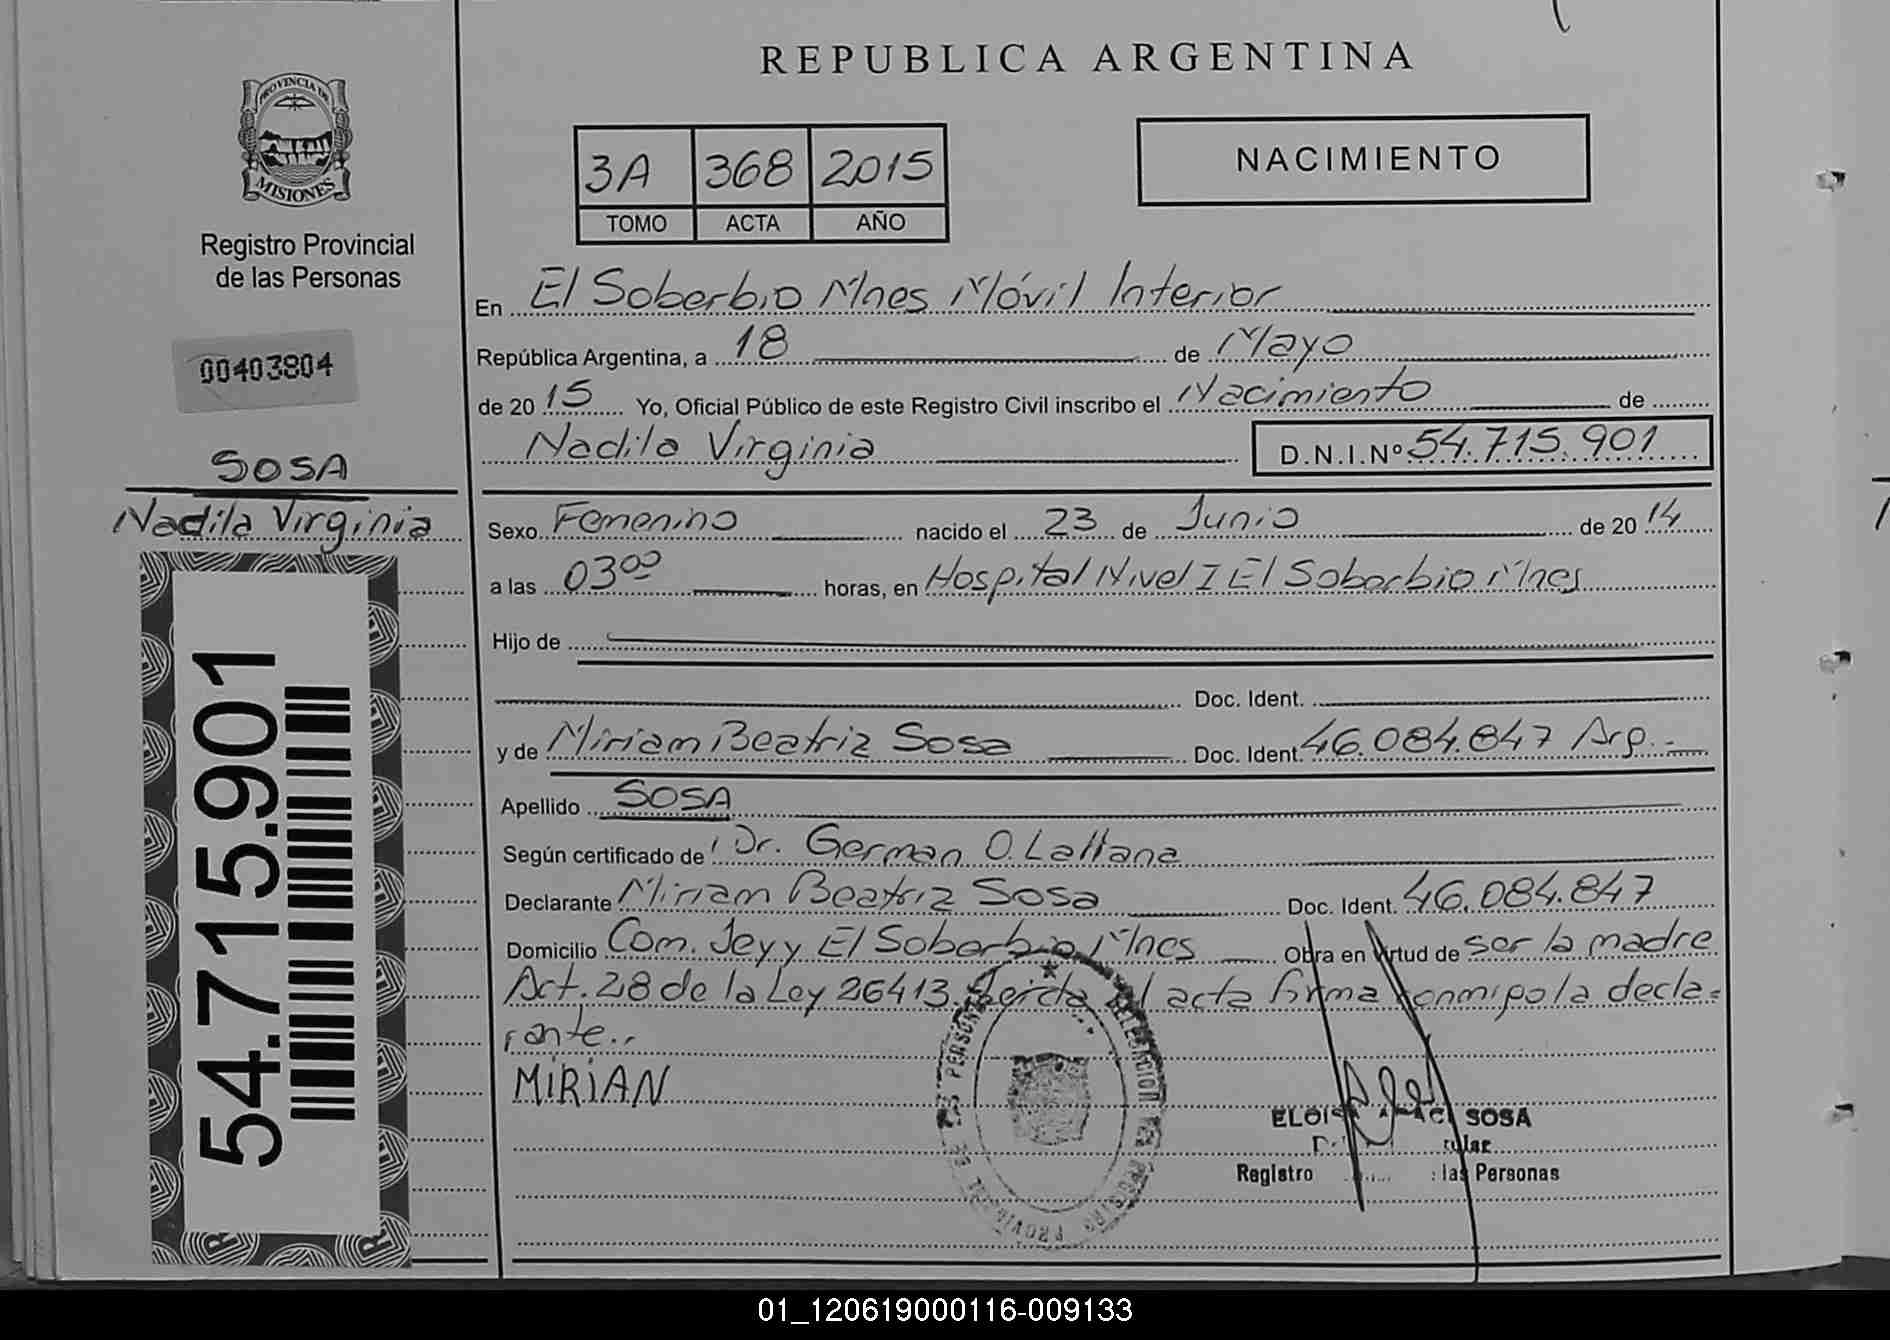 REPUBLICA ARGENTINA
PROVINCIA DE
MISIONES
Registro Provincial
de las Personas
00403804
SOSA
Nadila Virginia
54.715.901
3A 368 2015
TOMO ACTA AÑO
NACIMIENTO
En El Soberbio Mnes Móvil Interior
República Argentina, a 18 de Mayo
de 2015 Yo, Oficial Público de este Registro Civil inscribo el Nacimiento de
Nadila Virginia D.N.I.Nº 54.715.901
Sexo Femenino nacido el 23 de Junio de 2014
a las 03⁰⁰ horas, en Hospital Nivel I El Soberbio Mnes
Hijo de
Doc. Ident.
y de Miriam Beatriz Sosa Doc. Ident. 46.084.847 Arg.-
Apellido SOSA
Según certificado de Dr. German O. Lattana
Declarante Miriam Beatriz Sosa Doc. Ident. 46.084.847
Domicilio Com. Jeyy El Soberbio Mnes Obra en Virtud de ser la madre
Art. 28 de la Ley 26413. Leida el acta firma conmigo la decla=
rante..
MIRIAN
SOSA
Registro las Personas
01_120619000116-009133